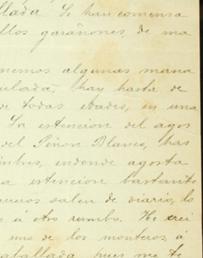 llada. Se han comensa
llos garañones, de ma
nemos algunas mana
ulada, hay hasta de
de todas edades, en una
La estencion del agos
del Señor Blanco, has
endonde agosta
a estencion bastante
salen de diario, lo
r á otro rumbo. He crei
uno de los monteros, á
aballada, pues me te